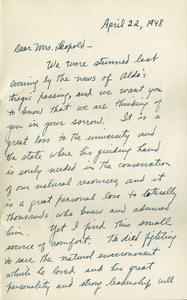 April 22, 1948
Dear Mrs. Leopold —
We were stunned last
evening by the news of Aldo's
tragic passing, and we want you
to know that we are thinking of
you in your sorrow. It is a
great loss to the university and
the state where his guiding hand
is sorely needed in the conservation
of our natural resources, and it
is a great personal loss to literally
thousands who knew and admired
him. Yet I find this small
source of comfort. He died fighting
to save the natural environment
which he loved and his great
personality and strong leadership will